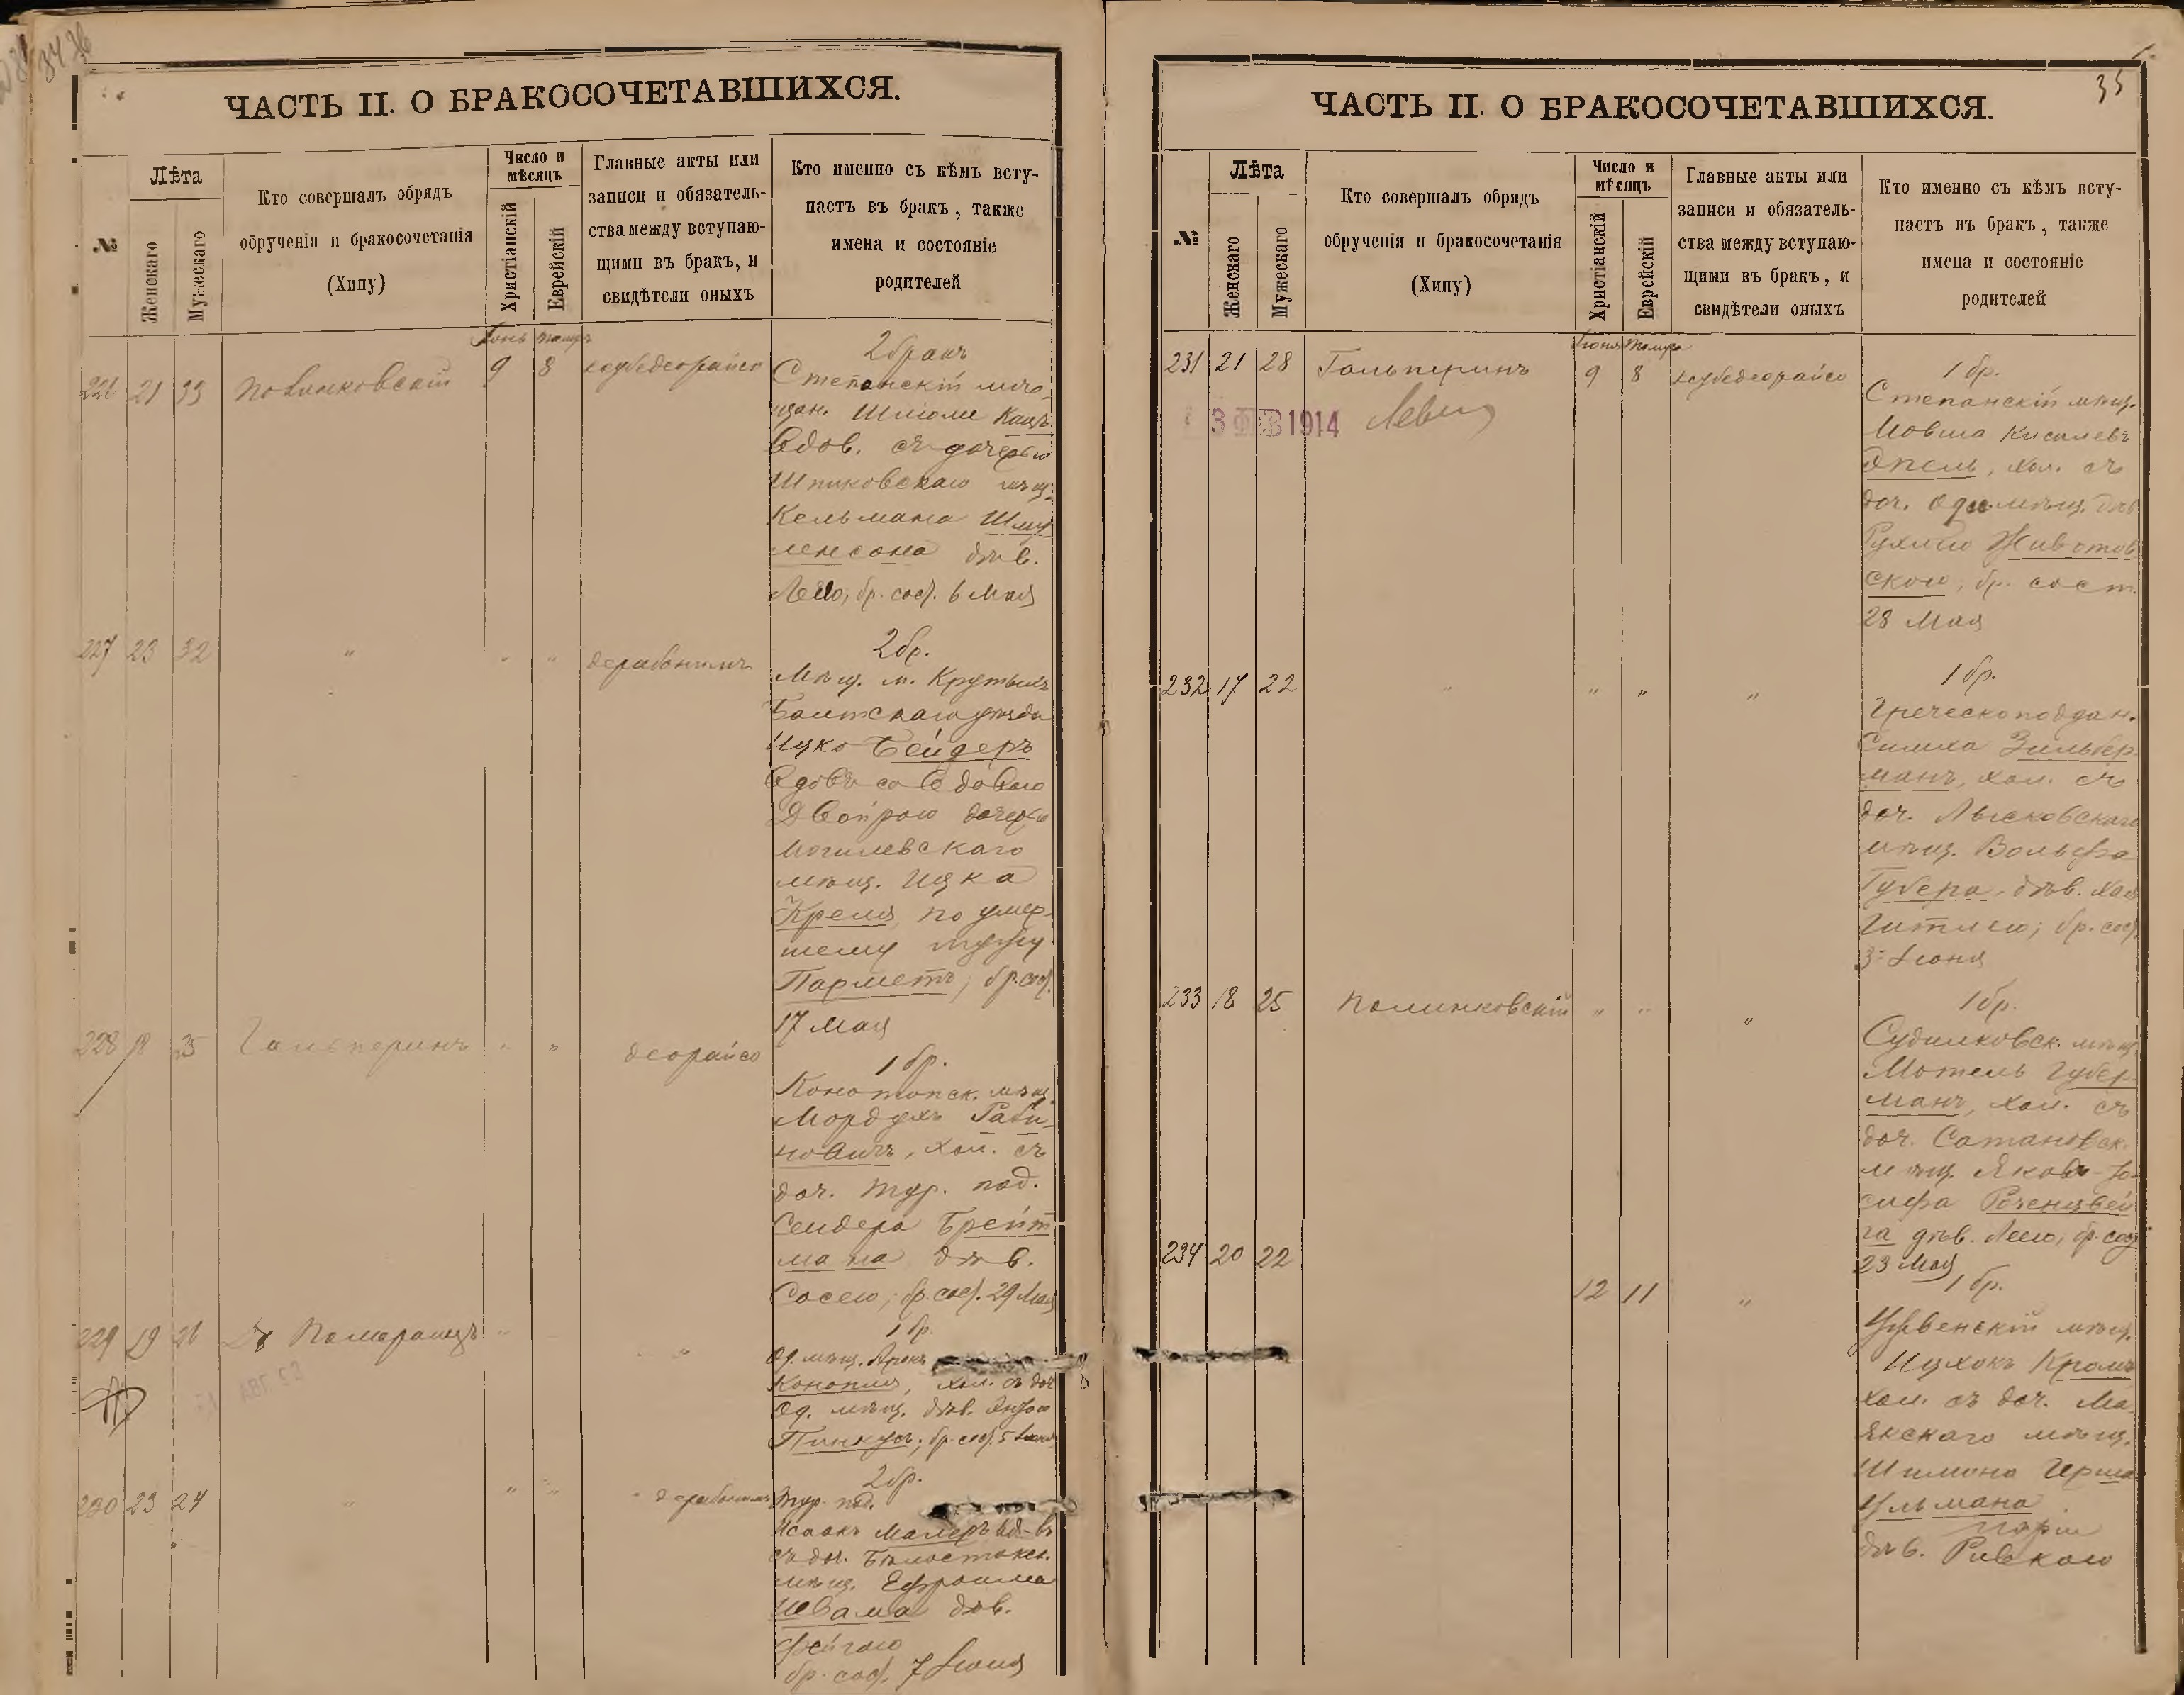 ЧАСТЬ II. О БРАКОСОЧЕТАВШИХСЯ.
№
Лѣта
Женскаго
Мужескаго
Кто совершалъ обрядъ
обрученія и бракосочетанія
(Хипу)
Число и
мѣсяцъ
Христіанскій
Еврейскій
Главные акты или
записи и обязатель-
ства между вступаю-
щими въ бракъ, и
свидѣтели оныхъ
Кто именно съ кѣмъ всту-
паетъ въ бракъ, также
имена и состояніе
родителей
226 21 33 9 8
2 бракъ
Степанскій мѣ
щан. Кацъ
вдов. съ дочерью
Шпиковскаго мѣщ.
Кельмана Шму
ленсона дѣв.
бр. сос. 6 Мая
227 23 32 " " " дерабонимъ
2 бр.
Мѣщ. м. Крутыхъ
Балтскаго уѣзда
Ицко Бейдеръ
вдовъ со вдовою
Двойрою дочерью
Могилевскаго
мѣщ. Ицка
Креля, по умер-
шему мужу
Парметъ; бр. сос.
17 Мая
228 18 25 Гальперинъ " " деорайсо
1 бр.
Конотопск. мѣщ.
Мордухъ Раби-
новичъ, хол. съ
доч. тур. под.
Сендера Брейт
мана дѣв.
Сосею; бр. сос. 29 Мая
229 19 26 Померанцъ " "
1 бр.
Од. мѣщ. Аронъ
Конопля, хол. съ доч
Од. мѣщ. дѣв.
Пинкус; бр. сос. 5 Іюня
230 23 24 " " " дерабонимъ
2 бр.
Тур. под.
Исаакъ Малеръ вд-въ
съ доч. Бѣлостокск.
мѣщ. Ефроима
Швама дѣв.
Фейгою
бр. сос. 7 Іюня
35
ЧАСТЬ II. О БРАКОСОЧЕТАВШИХСЯ.
№
Лѣта
Женскаго
Мужескаго
Кто совершалъ обрядъ
обрученія и бракосочетанія
(Хипу)
Число и
мѣсяцъ
Христіанскій
Еврейскій
Главные акты или
записи и обязатель-
ства между вступаю-
щими въ бракъ, и
свидѣтели оныхъ
Кто именно съ кѣмъ всту-
паетъ въ бракъ, также
имена и состояніе
родителей
231 21 28 Гальперинъ 9 8
3 ФЕВ 1914
1 бр.
Степанскій мѣщ.
Мовша Киселевъ
хол. съ
доч. Од. мѣщ. дѣв
Рухлею Животов
скою; бр. сост.
28 Мая
232 17 22 " " " "
1 бр.
Греческоподдан.
Симха Зильбер
манъ, хол. съ
доч. Лысковскаго
мѣщ. Вольфа
Губера дѣв.
Гитлею; бр. сос.
3 Іюня
233 18 25 Полинковскій " " "
1 бр.
Судилковск. мѣщ
Мотель Губер-
манъ, хол. съ
доч. Сатановск.
мѣщ. Яковъ-Іо-
сифа Розенцвей
га дѣв. Леею; бр. сос
23 Мая
234 20 22 12 11 "
1 бр.
мѣщ.
Ицхокъ
хол. съ доч. Ма-
якскаго мѣщ.
Шимона Герша
Ульмана
дѣв. Ривкою